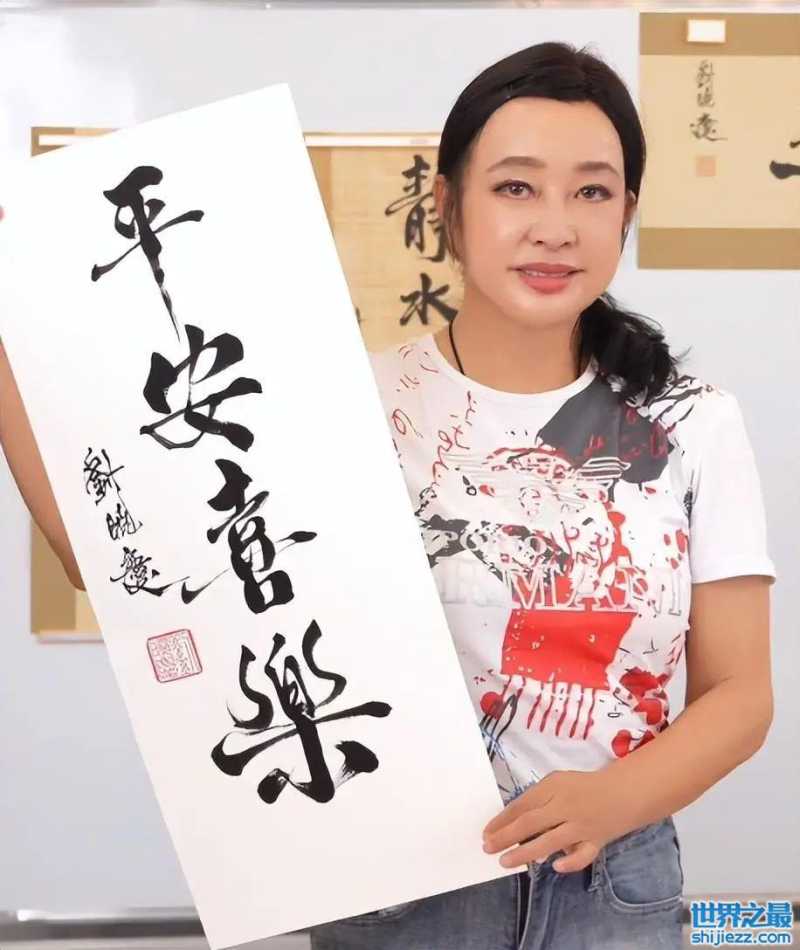 平安喜樂
劉曉慶
靜水
劉曉慶
世界之最
shijiezz.com